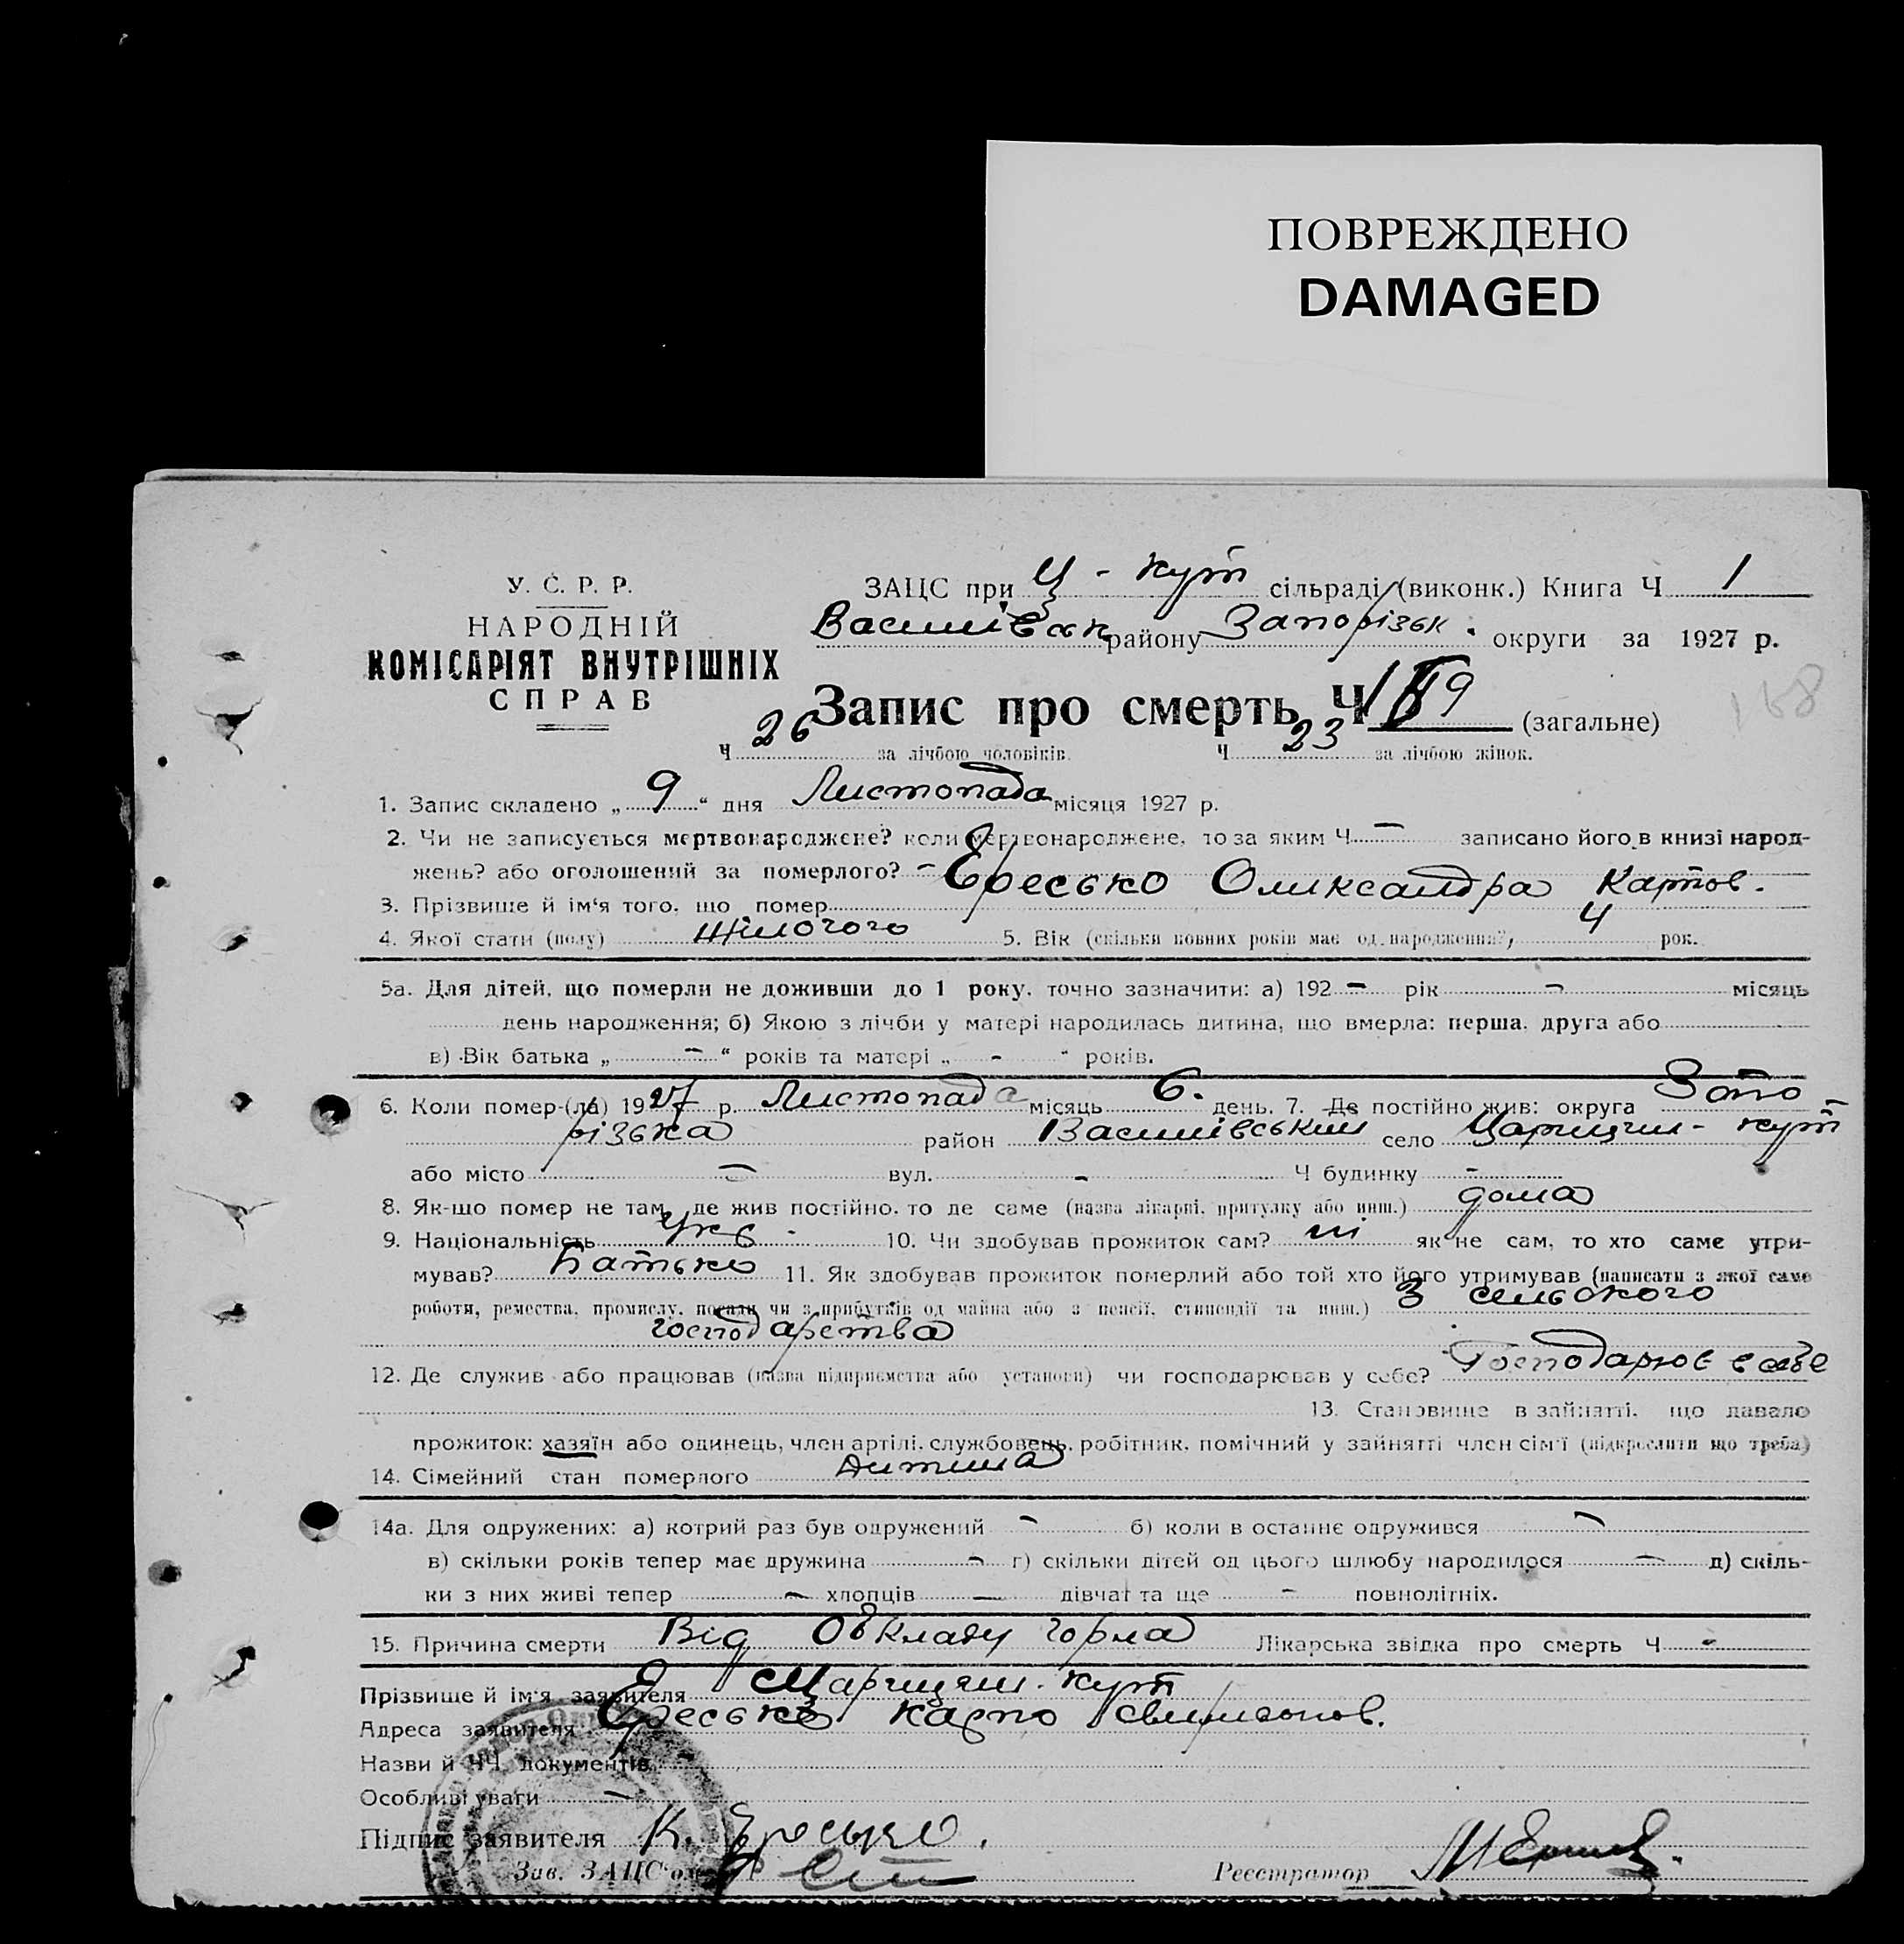 ПОВРЕЖДЕНО
DAMAGED
У. С. Р. Р.
НАРОДНІЙ
КОМІСАРІЯТ ВНУТРІШНІХ
СПРАВ
ЗАЦС при Ц - Кут сільраді (виконк.) Книга Ч 1
Василівськ району Запорізьк. округи за 1927 р.
Запис про смерть Ч 9 (загальне)
168
Ч 26 за лічбою чоловіків. Ч 23 за лічбою жінок.
1. Запис складено „ 9 “ дня Листопада місяця 1927 р.
2. Чи не записується мертвонароджене? коли мертвонароджене, то за яким Ч — записано його в книзі народ-
жень? або оголошений за померлого? —
3. Прізвище й ім‘я того, що помер Єресько Олександра Карпов.
4. Якої стати (полу) жіночого 5. Вік (скільки повних років має од народження?) 4 рок.
5а. Для дітей, що померли не доживши до 1 року, точно зазначити: а) 192 — рік — місяць
день народження; б) Якою з лічби у матері народилась дитина, що вмерла: перша, друга або
в) Вік батька „ — “ років та матері „ - “ років.
6. Коли помер-(ла) 1927 р. Листопада місяць 6. день. 7. Де постійно жив: округа Запо-
різька район Василівський село Царицин - Кут
або місто — вул. - Ч будинку -
8. Як-що помер не там, де жив постійно, то де саме (назва лікарні, притулку або инш.) дома
9. Національність укр. 10. Чи здобував прожиток сам? ні як не сам, то хто саме утри-
мував? Батько 11. Як здобував прожиток померлий або той хто його утримував (написати з якої саме
роботи, ремества, промислу, посади чи з прибутків од майна або з пенсії, стипендії та инш.) З сільського
господарства
12. Де служив або працював (назва підприємства або установи) чи господарював у себе? Господарює в себе
13. Становище в зайнятті, що давало
прожиток: хазяїн або одинець, член артілі, службовець, робітник, помічний у зайнятті член сім‘ї (підкреслити що треба)
14. Сімейний стан померлого дитина
14а. Для одружених: а) котрий раз був одружений — б) коли в останнє одружився —
в) скільки років тепер має дружина — г) скільки дітей од цього шлюбу народилося — д) скіль-
ки з них живі тепер — хлопців — дівчат та ще - повнолітніх.
15. Причина смерти Від Обкладу горла Лікарська звідка про смерть Ч -
Прізвище й ім‘я заявителя Царицин. Кут
Адреса заявителя Єресько Карпо
Назви й ЧЧ. документів —
Особливі уваги —
Підпис заявителя К. Єресько.
Зав. ЗАЦС‘ом Реєстратор